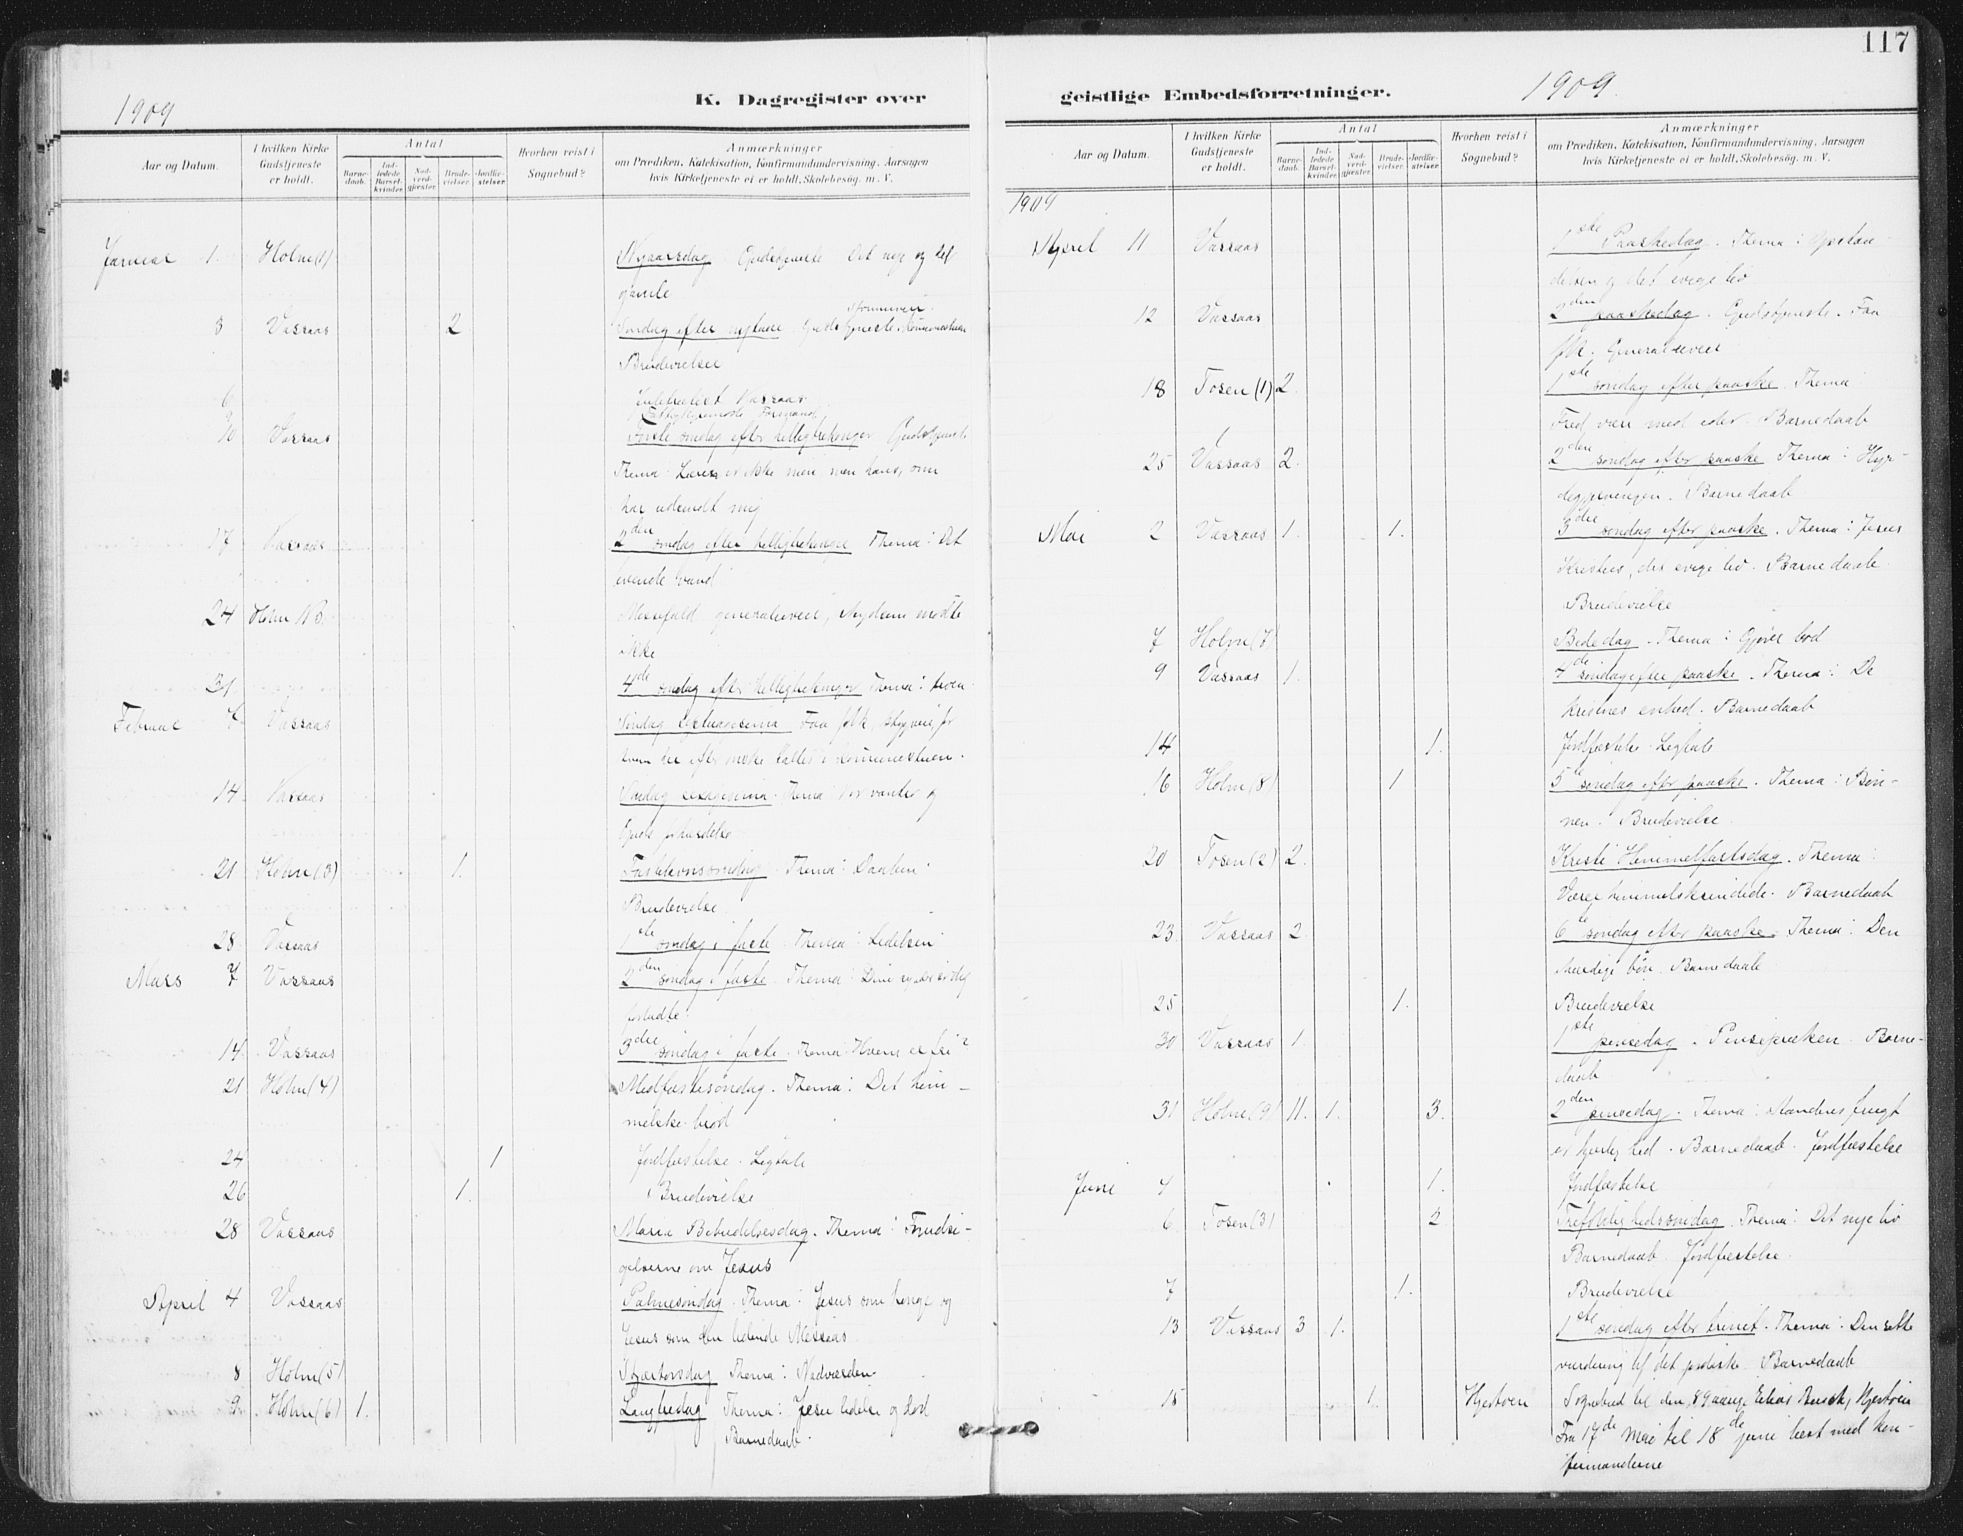 117
1909
K. Dagregister over
geistlige Embedsforretninger.
1909.
Aar og Datum.
I hvilken Kirke Gudstjeneste er holdt.
Antal
Barnedaab.
Indledede Barselkvinder.
Nadverdgjæster.
Brudevielser.
Jordfæstelser.
Hvorhen reist i Sognebud?
Anmærkninger
om Prædiken, Katekisation, Konfirmandundervisning, Aarsagen
hvis Kirketjeneste ei er holdt, Skolebesøg. m. V.
Januar 1. Holm (1) Nyaarsdag. Gudstjeneste Det nye og det
gamle
3 Vassaas 2 Søndag efter nytaar. Gudstjeneste.
Brudevielse
6 Vassaas
10 Vassaas Første søndag efter helligtrekonger Gudstjenest.
Thema: Læren er ikke min men hans, som
har udsendt mig
17 Vassaas 2den søndag efter helligtrekonger Thema: Det
levende vand
24 Holm Messefald generalveir, skydsen mødte
ikke
31 4de søndag efter helligtrekonger Thema:
Februar 7 Vassaas Søndag septuagesima Faa folk,
14 Vassaas Søndag sexagesima. Thema:
21 Holm (3) 1. Fastelavnssøndag. Thema: Daaben.
Brudevielse
28 Vassaas 1ste søndag i faste Thema: Lidelsen
Mars 7 Vassaas 2den søndag i faste. Thema:
14 Vassaas 3die søndag i faste. Thema: Hvem er fri?
21 Holm (4) Midfastesøndag. Thema: Det him-
melske brød
24 1 Jordfæstelse. Ligtale
26 1. Brudevielse
28 Vassaas Maria Bebudelsesdag. Thema: Forudsi-
gelserne om Jesus
April 4 Vassaas Palmesøndag. Thema: Jesus som konge og
Jesus som den lidende Messias
8 Holm (5) Skjærtorsdag Thema: Nadverden
9. Holm (6) 1. Langfredag Thema: Jesu lidelse og død
Barnedaab.
Aar og Datum.
I hvilken Kirke Gudstjeneste er holdt.
Antal
Barnedaab.
Indledede Barselkvinder.
Nadverdgjæster.
Brudevielser.
Jordfæstelser.
Hvorhen reist i Sognebud?
Anmærkninger
om Prædiken, Katekisation, Konfirmandundervisning, Aarsagen
hvis Kirketjeneste ei er holdt, Skolebesøg. m. V.
1909
April 11 Vassaas 1ste Paaskedag. Thema: Opstan-
delsen og det evige liv
12 Vassaas 2den paaskedag. Gudstjeneste. Faa
folk. Generalveir
18 Tosen (1) 2. 1ste søndag efter paaske. Thema
Fred være med eder. Barnedaab
25 Vassaas 2. 2den søndag efter paaske Thema: Hyr-
degjerningen. Barnedaab
Mai 2 Vassaas 1. 1. 3die søndag efter paaske. Thema: Jesus
Kristus, det evige liv. Barnedaab.
Brudevielse
7 Holm (7) Bededag. Thema: Gjører bod
9 Vassaas 1. 4de søndag efter paaske. Thema: De
kristnes enhed. Barnedaab
14 1. Jordfæstelse. Ligtale
16 Holm (8) 1 5te søndag efter paaske. Thema: Bøn-
nen. Brudevielse.
20 Tosen (2) 2. Kristi Himmelfartsdag. Thema:
Være himmelsksindede. Barnedaab
23 Vassaas 2. 6te søndag efter paaske. Thema: Den
bøn. Barnedaab
25 1. Brudevielse
30 Vassaas 1. 1ste pinsedag. Pinsepræken. Barne-
daab
31 Holm (9) 11. 1. 3. 2den pinsedag. Thema: Aandens frugt
er kjærlighed. Barnedaab. Jordfæstelse
Juni 4 1. Jordfæstelse
6 Tosen (3) 2 Trefoldighedssøndag. Thema: Det nye liv
Barnedaab. Jordfæstelse.
7 1. Brudevielse
13 Vassaas 3 1. 1ste søndag efter trinit. Thema: Den rette
vurdering af det jordiske. Barnedaab
15 1. Hjortøen Sognebud til den 89 aarige Elias Busch, Hjortøen
Fra 17de Mai til 18de juni læst med kon-
firmanderne